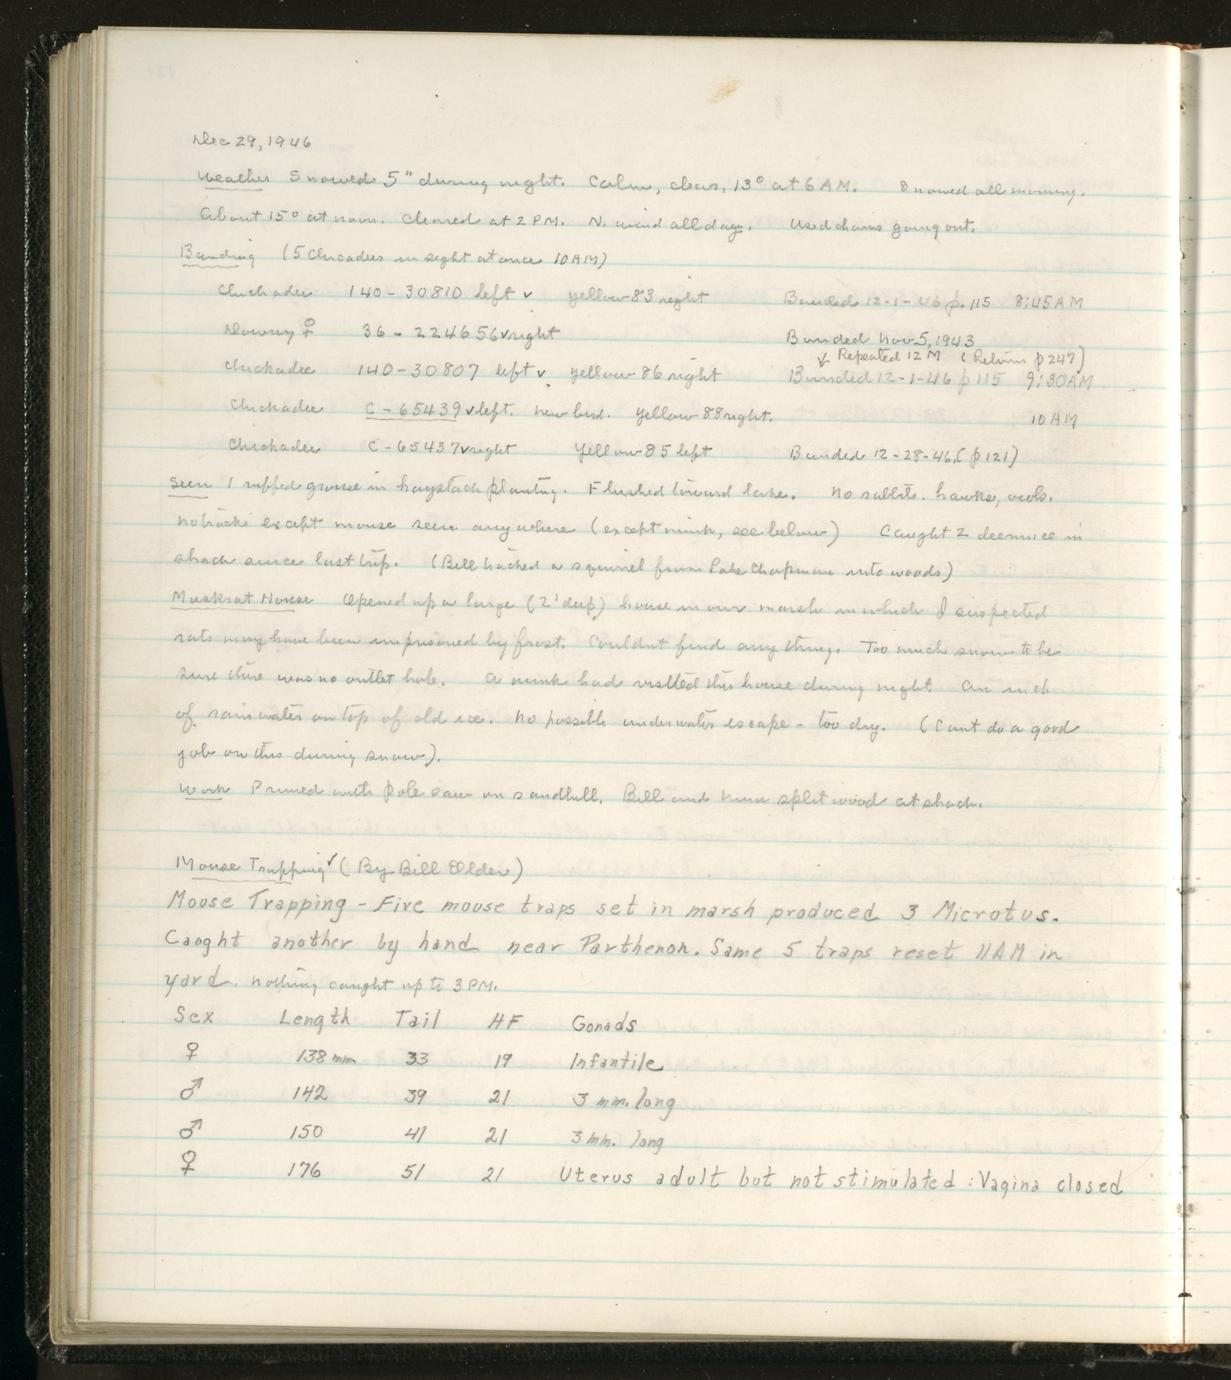 Dec 29, 1946
Weather Snowed 5" during night. Calm, clear, 13° at 6 AM. Snowed all morning.
About 15° at noon. Cleared at 2 PM. N. wind all day. Used chains going out.
Banding (5 Chicadees in sight at once 10 AM)
Chickadee 140-30810 left v yellow 83 right Banded 12-1-46 p. 115 8:45 AM
Downy ♀ 36-224656 v right Banded Nov 5, 1943
Repeated 12 M (Return p 247)
Chickadee 140-30807 left v yellow 86 right Banded 12-1-46 p 115 9:30 AM
Chickadee C-65439 v left. new bird. yellow 88 right. 10 AM
Chickadee C-65437 v right Yellow 85 left Banded 12-28-46 (p 121)
Seen 1 ruffed grouse in haystack planting. Flushed toward lake. No rabbits, hawks, owls.
No tracks except mouse seen anywhere (except mink, see below) Caught 2 deermice in
shack since last trip. (Bill tracked a squirrel from Lake Chapman into woods)
Muskrat House Opened up a large (2' deep) house in our marsh in which I suspected
rats may have been imprisoned by frost. Couldnt find anything. Too much snow to be
sure there was no outlet hole. A mink had visited this house during night. An inch
of rainwater on top of old ice. No possible underwater escape - too dry. (Cant do a good
job on this during snow).
Work Pruned with pole saw on sandhill. Bill and Nina split wood at shack.
Mouse Trapping ✓ (By Bill Elder)
Mouse Trapping - Five mouse traps set in marsh produced 3 Microtus.
Caught another by hand near Parthenon. Same 5 traps reset 11AM in
yard. nothing caught up to 3 PM.
Sex Length Tail HF Gonads
♀ 138 mm 33 19 Infantile
♂ 142 39 21 3 mm. long
♂ 150 41 21 3 mm. long
♀ 176 51 21 Uterus adult but not stimulated : Vagina closed